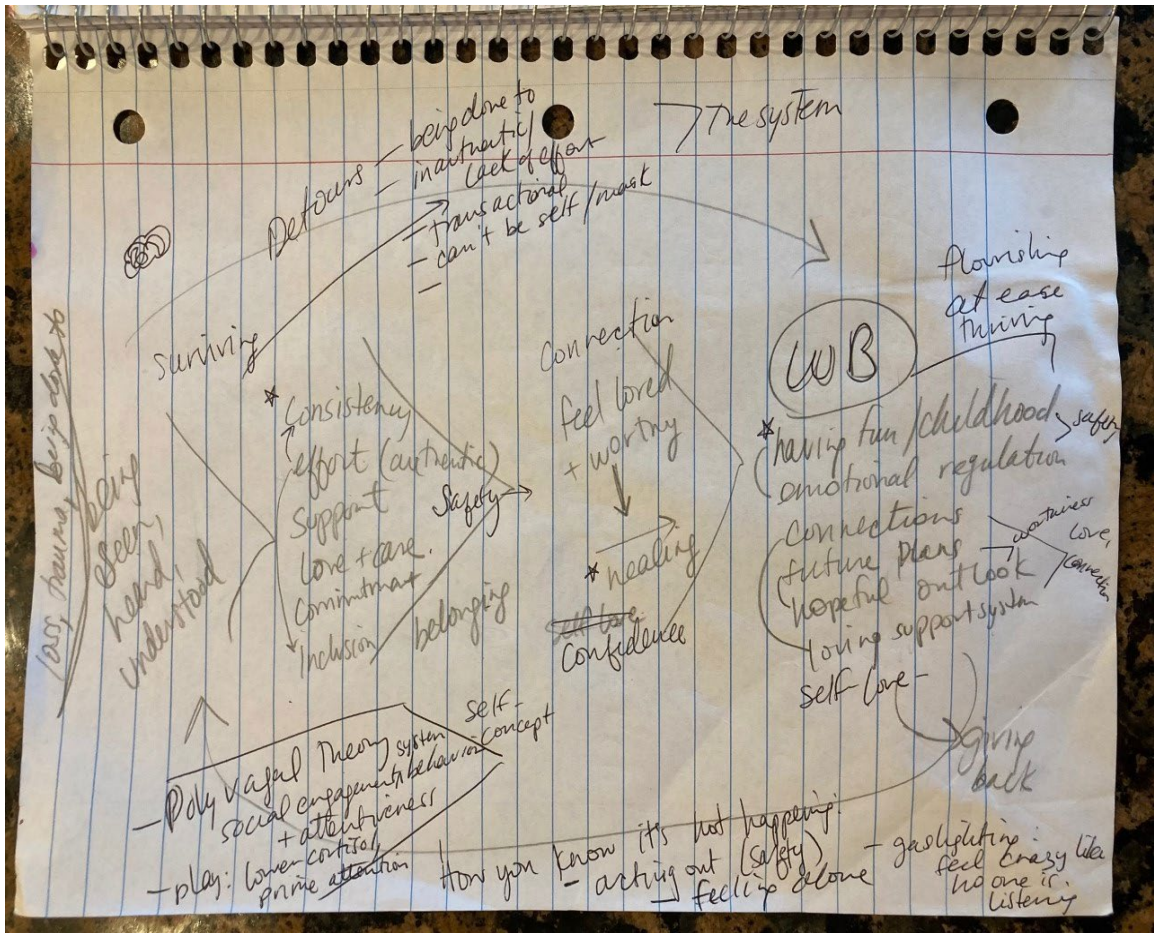 Detours
- being done to
- inauthentic/
lack of effort
- transactional
- can't be self/mask
-
The system
surviving
loss, trauma, being done to
being
seen,
heard,
understood
* Consistency
effort (authentic)
support
love + care.
Commitment
Inclusion
Safety
belonging
Connection
feel loved
+ worthy
* healing
self love
Confidence
WB
flourishing
at ease
thriving
* having fun/childhood
emotional regulation
safety
connections
future plans
hopeful outlook
loving support system
self-love-
worthiness
Love,
Connection
giving
back
- Poly vagal Theory
system
social engagement behavior
+ attentiveness
self-
concept
- play: lower cortisol,
prime attention
How you know it's not happening:
- acting out (safety)
- feeling alone
- gaslighting:
feel crazy like
no one is
listening